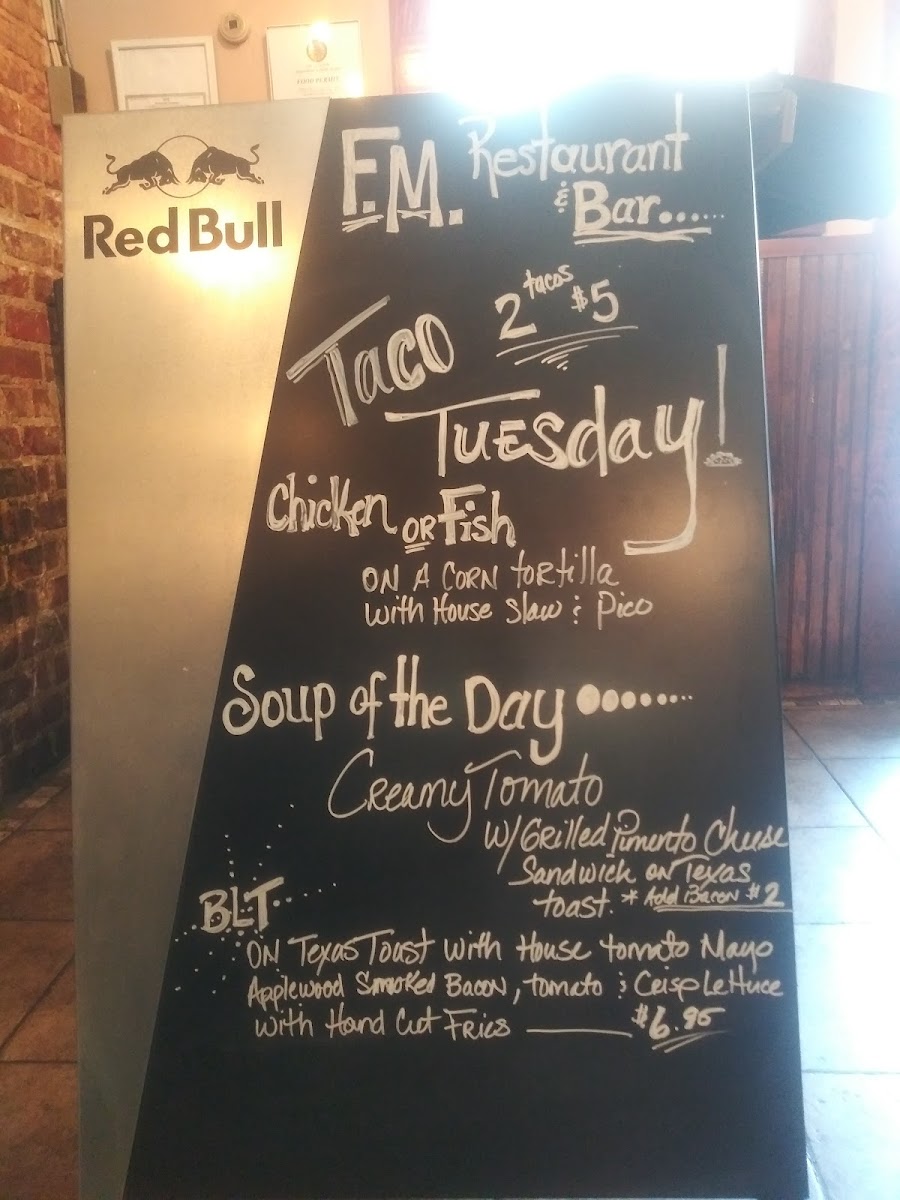 FOOD PERMIT
Red Bull
F.M. Restaurant
& Bar......
Taco 2 tacos $5
Tuesday!
Chicken or Fish
ON A CORN tortilla
with House Slaw & Pico
Soup of the Day ........
Creamy Tomato
W/ Grilled Pimento Cheese
Sandwich on Texas
toast. * Add Bacon $2
BLT
ON Texas Toast with House tomato Mayo
Applewood Smoked Bacon, tomato & Crisp Lettuce
with Hand Cut Fries — $6.95